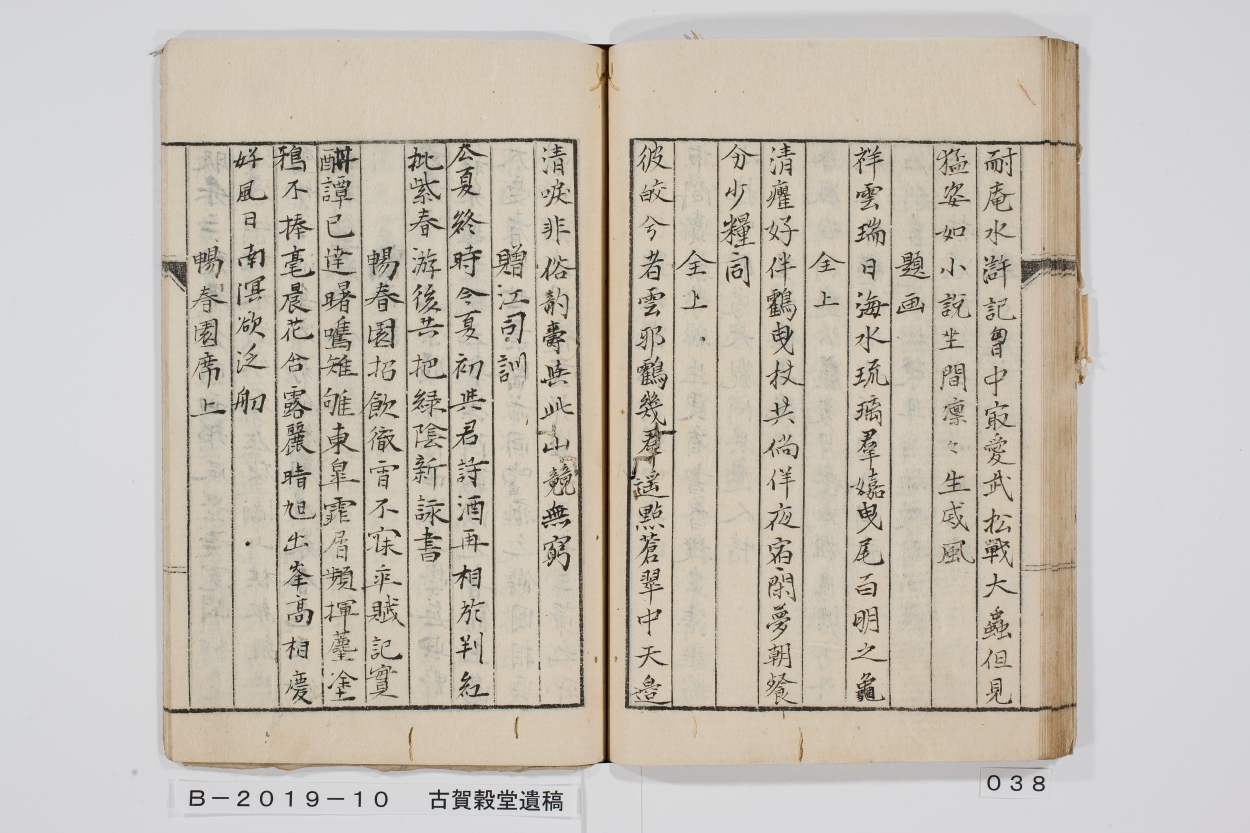 耐庵水滸記胷中寂愛武松戰大蟲但見
猛姿如小說坐間凛々生威風
題画
祥雲瑞日海水琉璃羣嬉曳尾百明之龜
仝上
清癯好伴鶴曳杖共倘佯夜宿閑夢朝餐
分少糧同
仝上
彼皎兮者雲邪鶴幾羣遥點蒼翠中天邉
清唳非俗韵壽與此山競無窮
贈江司訓
去夏終時今夏初與君詩酒再相於判紅
批紫春游後共把緑陰新詠書
暢春園招飲徹宵不寐乗賦記實
酣譚已達曙嚾雉雊東皐霏屑頻揮麈塗
鴉不捧毫晨花含露麗晴旭出峯高相慶
好風日南溟欲泛舠
暢春園席上
B－2019－10　古賀穀堂遺稿
038